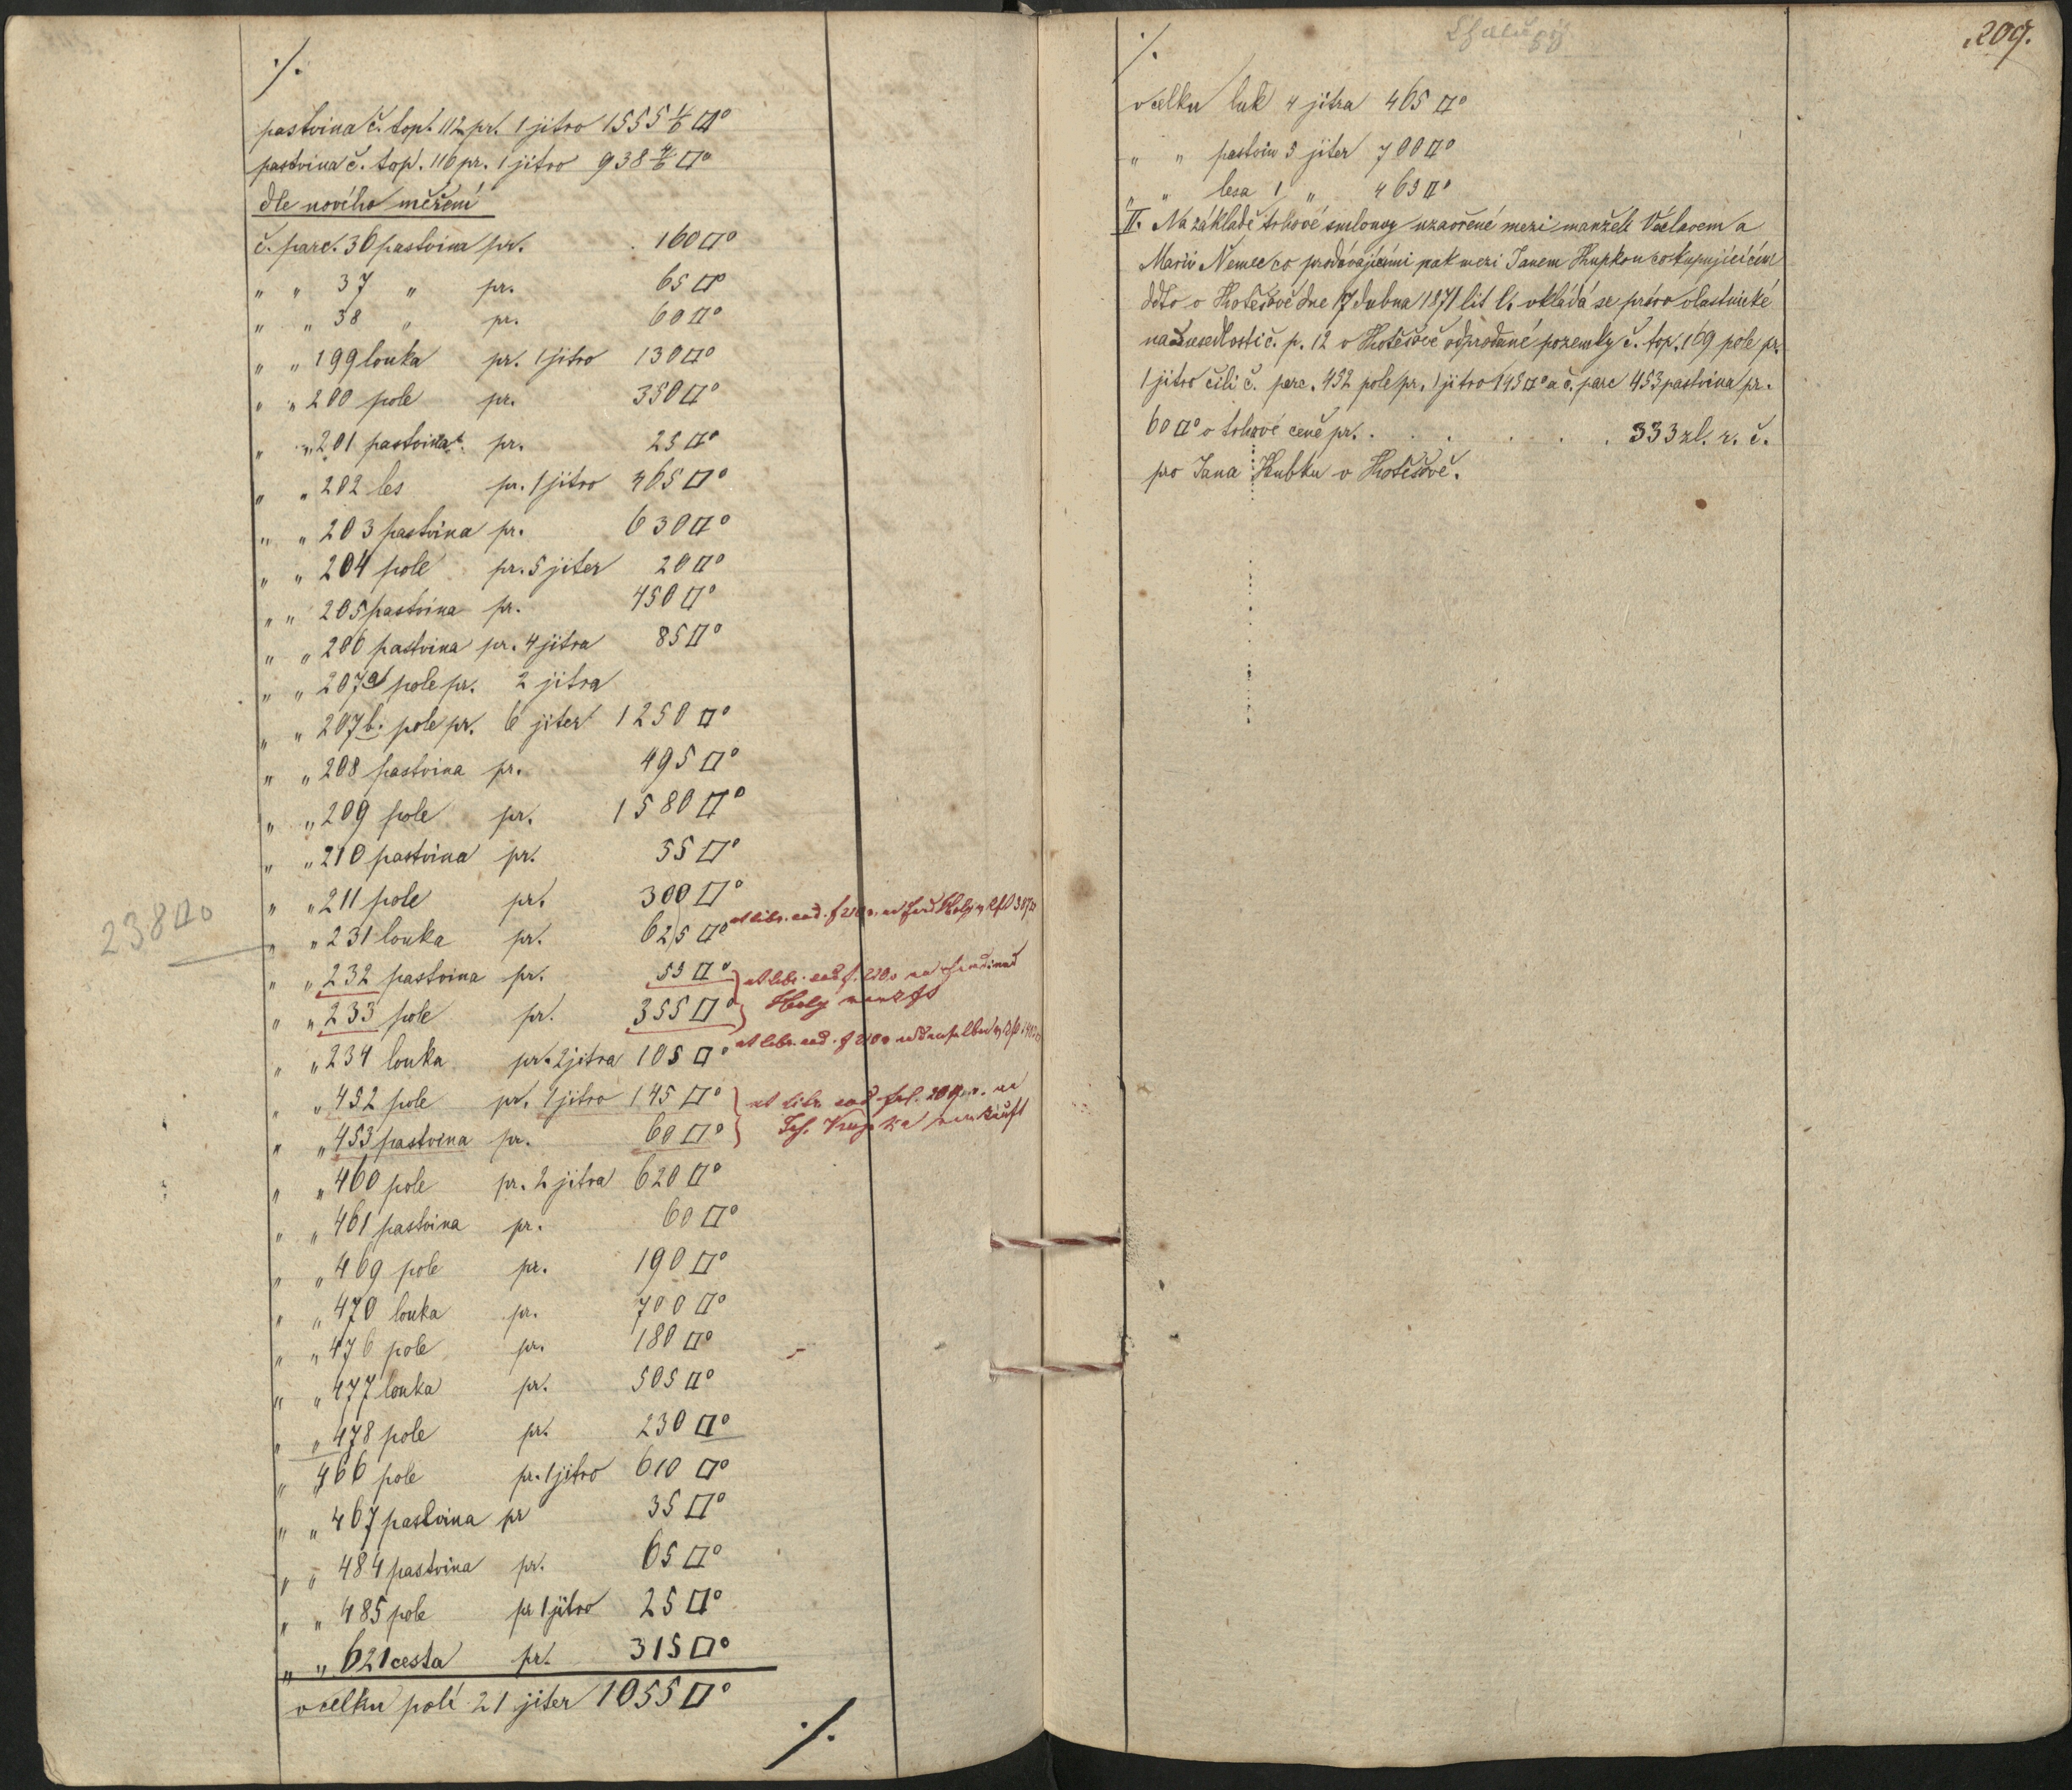 ./.
pastvina č. top. 112 pr. 1 jitro 1555 1/6 □°
pastvina č. top. 116 pr. 1 jitro 938 4/6 □°
dle nového měření
č. parc. 36 pastvina pr. 160 □°
" " 37 " pr. 65 □°
" " 38 " pr. 60 □°
" " 199 louka pr. 1 jitro 130 □°
" " 200 pole pr. 350 □°
" " 201 pastvina pr. 25 □°
" " 202 les pr. 1 jitro 465 □°
" " 203 pastvina pr. 630 □°
" " 204 pole pr. 5 jiter 20 □°
" " 205 pastvina pr. 450 □°
" " 206 pastvina pr. 4 jitra 85 □°
" " 207 a pole pr. 2 jitra
" " 207 b. pole pr. 6 jiter 1250 □°
" " 208 pastvina pr. 495 □°
" " 209 pole pr. 1580 □°
" " 210 pastvina pr. 55 □°
" " 211 pole pr. 300 □°
238 □°
" " 231 louka pr. 625 □° libr. eod. f 210
" " 232 pastvina pr. 55 □° libr. eod f. 210 Ferdinand
" " 233 pole pr. 355 □° Holy
" " 234 louka pr. 2 jitra 105 □° libr. eod. f 210
" " 452 pole pr. 1 jitro 145 □° libr. eod. fol. 209
" " 453 pastvina pr. 60 □° Joh. Krupka verkauft
" " 460 pole pr. 2 jitra 620 □°
" " 461 pastvina pr. 60 □°
" " 469 pole pr. 190 □°
" " 470 louka pr. 700 □°
" " 476 pole pr. 180 □°
" " 477 louka pr. 505 □°
" " 478 pole pr. 230 □°
" " 466 pole pr. 1 jitro 610 □°
" " 467 pastvina pr 35 □°
" " 484 pastvina pr. 65 □°
" " 485 pole pr 1 jitro 25 □°
" " 621 cesta pr. 315 □°
v celku polí 21 jiter 1055 □°
./.
209.
./.
v celku luk 4 jitra 465 □°
" " pastvin 5 jiter 700 □°
" " lesa 1 " 465 □°
II. Na základě trhové smlouvy uzavřené mezi manžely Václavem a
Marií Němec co prodávajícími pak mezi Janem Hupkou co kupujícícím
ddto v Hotešově dne 17 dubna 1871 lit b. vkládá se právo vlastnické
na od usedlosti č. p. 12 v Hotešově odprodané pozemky č. top. 169 pole pr.
1 jitro čili č. parc. 452 pole pr. 1 jitro 145 □° a č. parc 453 pastvina pr.
60 □° v trhové ceně pr. . . . . . . 333 zl. r. č.
pro Jana Hubku v Hotešově.